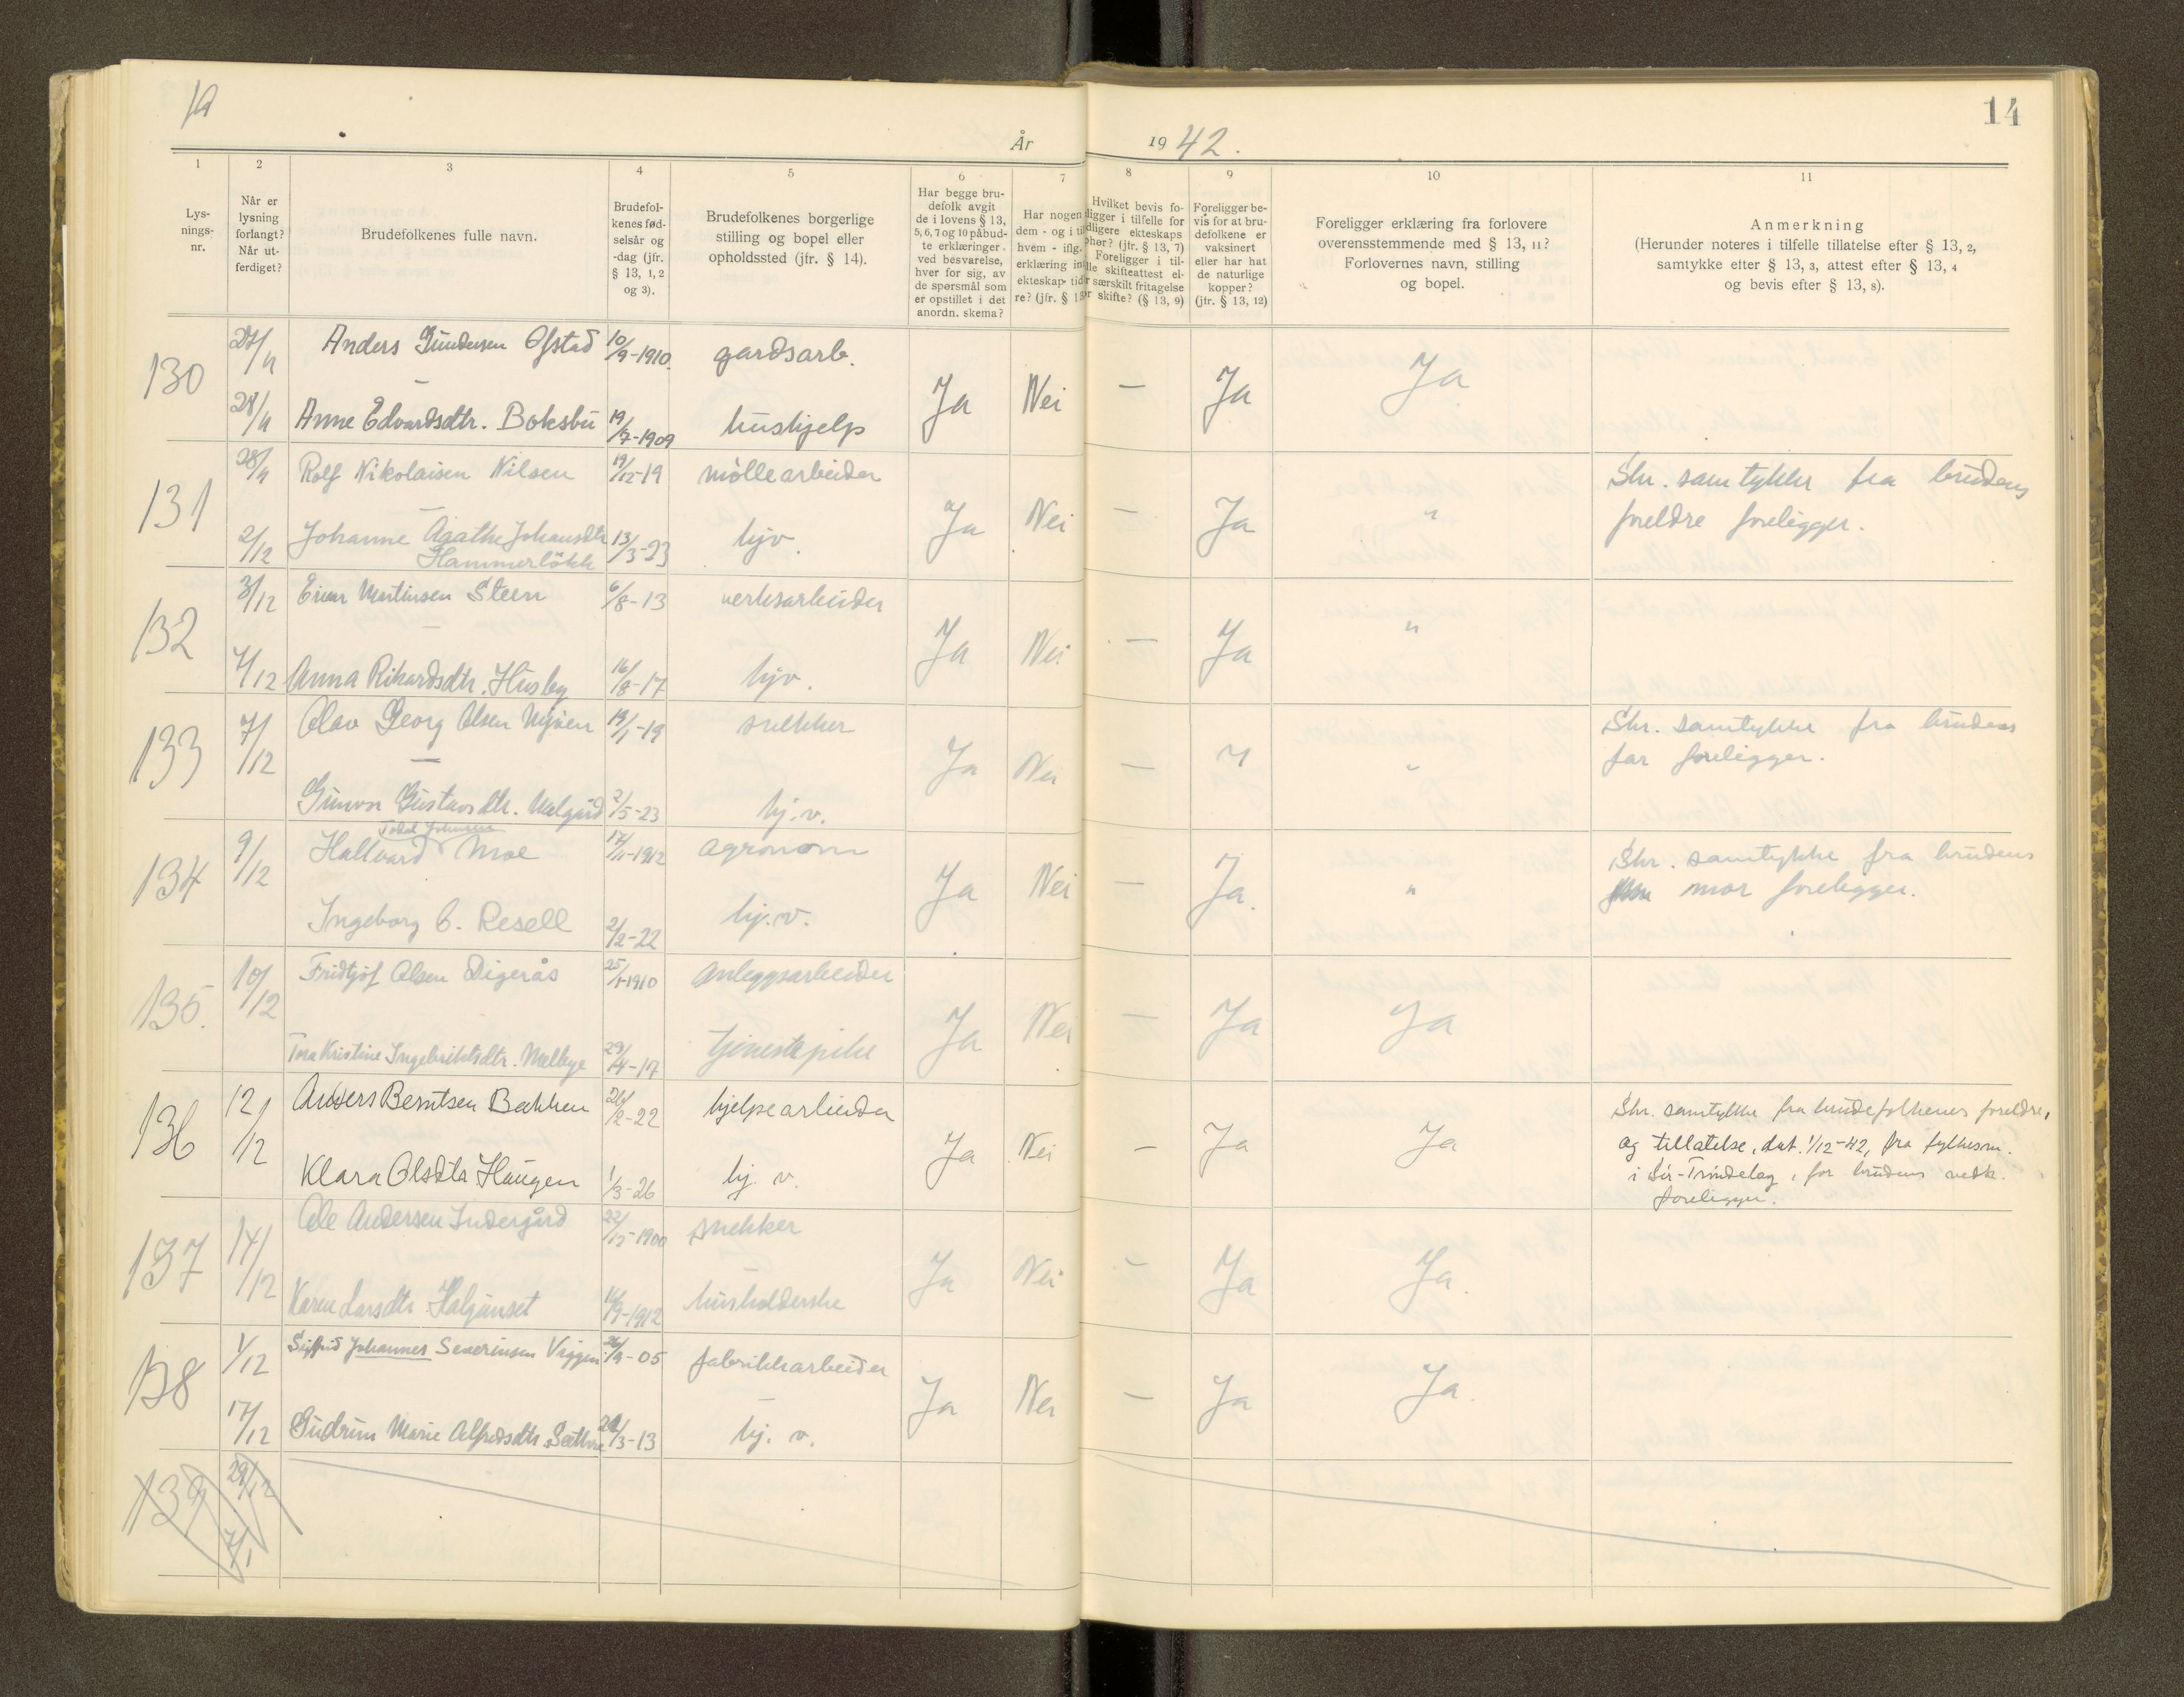 14
År 1942.
1 2 3 4 5 6 7 8 9 10 11
Lys-
nings-
nr.
Når er
lysning
forlangt?
Når ut-
ferdiget?
Brudefolkenes fulle navn.
Brudefol-
kenes fød-
selsår og
-dag (jfr.
§ 13, 1, 2
og 3).
Brudefolkenes borgerlige
stilling og bopel eller
opholdssted (jfr. § 14).
Har begge bru-
defolk avgit
de i lovens § 13,
5, 6, 7 og 10 påbud-
te erklæringer
ved besvarelse,
hver for sig, av
de spørsmål som
er opstillet i det
anordn. skema?
Har nogen
dem - og i til
hvem - iflg.
erklæring in
ekteskap tid
re? (jfr. § 13
Hvilket bevis fo-
religger i tilfelle for
tidligere ekteskaps
ophør? (jfr. § 13, 7)
Foreligger i til-
felle skifteattest el-
ler særskilt fritagelse
for skifte? (§ 13, 9)
Foreligger be-
vis for at bru-
defolkene er
vaksinert
eller har hat
de naturlige
kopper?
(jfr. § 13, 12)
Foreligger erklæring fra forlovere
overensstemmende med § 13, 11?
Forlovernes navn, stilling
og bopel.
Anmerkning
(Herunder noteres i tilfelle tillatelse efter § 13, 2,
samtykke efter § 13, 3, attest efter § 13, 4
og bevis efter § 13, 8).
130 27/11 Anders Gundersen Ofstad 10/9-1910. gardsarb. Ja Nei — Ja Ja
28/11 Anne Edvardsdtr. Boksbu 19/7-1909 hushjelp
131 28/11 Rolf Nikolaisen Nilsen 19/12-19 møllearbeider Ja Nei — Ja " Skr. samtykke fra brudens
foreldre foreligger.
2/12 Johanne Agathe Johansdtr 13/3-23 hjv.
Hammerløkk
132 3/12 Einar Martinsen Steen 6/8-13 verksarbeider Ja Nei — Ja "
7/12 Anna Rikardsdtr. Husby 16/8-17 hjv.
133 7/12 Olav Georg Olsen 19/1-19 snekker Ja Nei — " Skr. samtykke fra brudens
far foreligger.
Gunvor Gustavsdtr. 2/5-23 hj.v.
134 9/12 Hallvard Moe 17/11-1912 agronom Ja Nei — Ja. " Skr. samtykke fra brudens
mor foreligger.
Ingeborg C. Resell 2/2-22 hj.v.
135. 10/12 Fridtjof Olsen Digerås 25/1-1910 anleggsarbeider Ja Nei — Ja Ja
Tora Kristine Ingebriktsdtr. Melbye 29/4-17 tjenestepike
136 12/12 Anders Berntsen Bakken 26/2-22 hjelpearbeider Ja Nei — Ja Ja Skr. samtykke fra brudefolkenes foreldre,
og tillatelse, dat. 1/12-42, fra fylkesm.
i Sør-Trøndelag, for brudens vedk.
foreligger.
Klara Olsdtr Haugen 1/3-26 hj. v.
137 14/12 Ole Andersen Indergård 22/12-1900 snekker Ja Nei - Ja Ja.
Karen Larsdtr. Halgunset 16/9-1912 husholderske
138 1/12 Sigfrid Johannes Severinsen Viggen 26/9-05 fabrikkarbeider Ja Nei — Ja Ja.
17/12 Gudrun Marie Alfredsdtr. 3-13 hj. v.
139 29/12
7/1